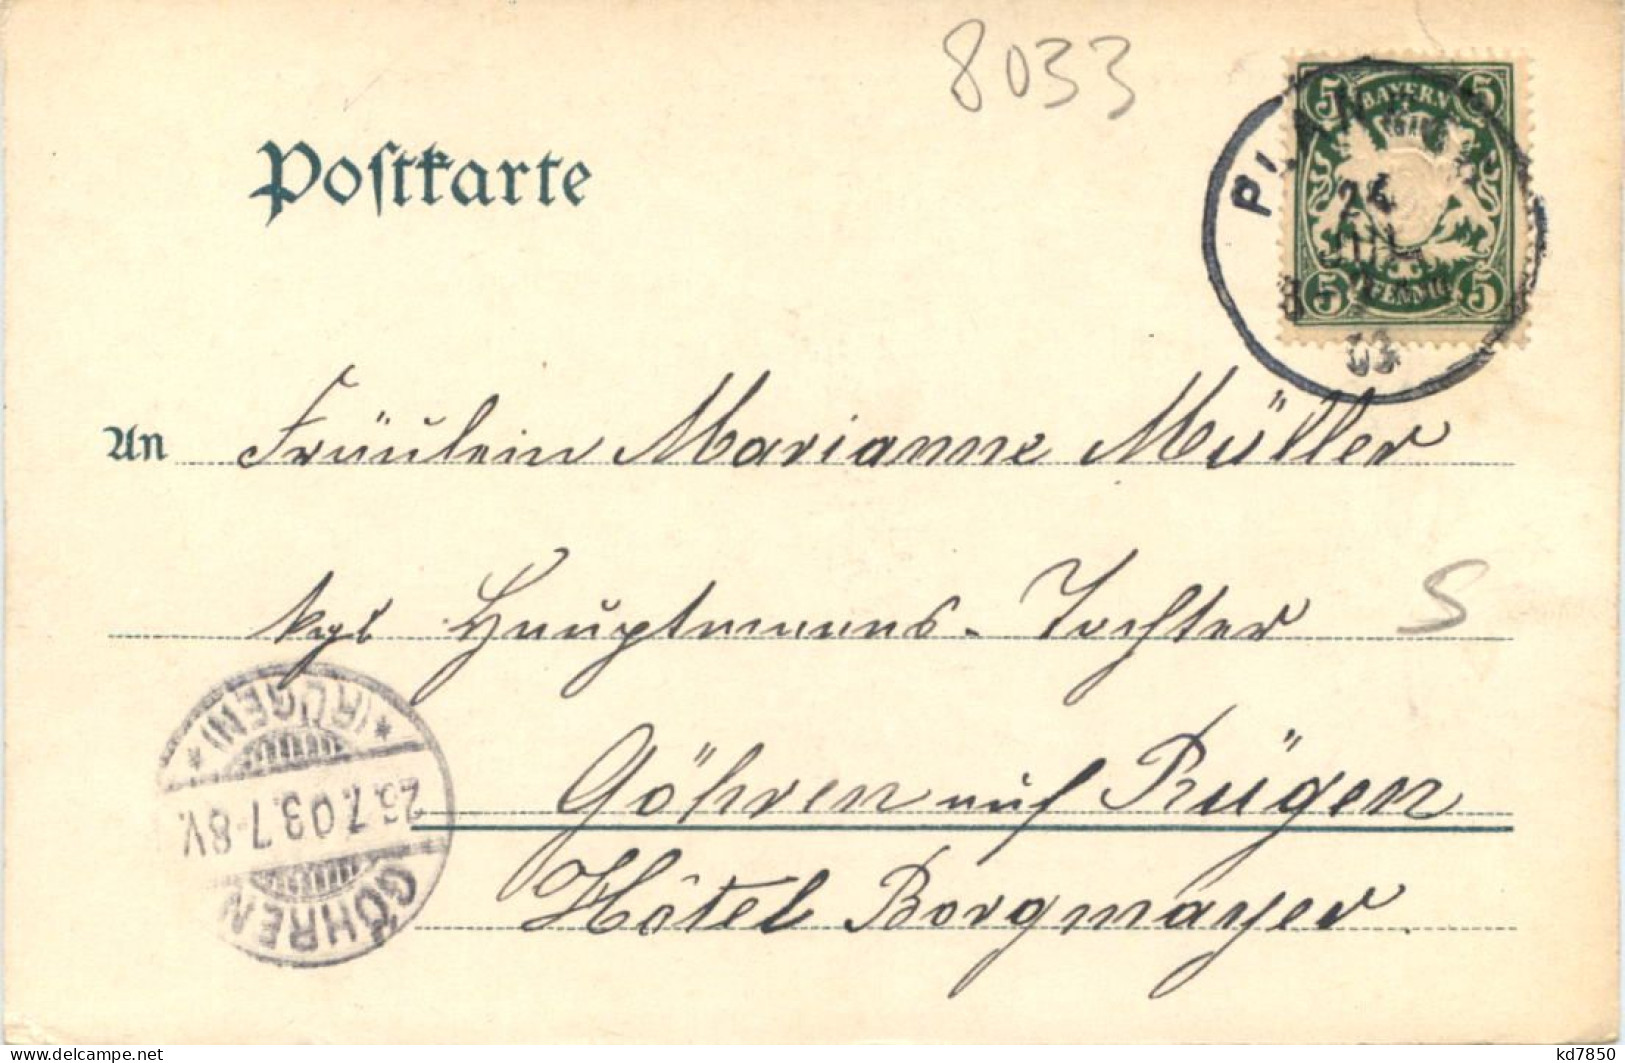 8033
5 BAYERN 5
Postkarte
24
JUL
5 PFENNIG 5
03
An Fräulein Marianne Müller
kgl Hauptmanns-Tochter
S
(RÜGEN)
Göhren auf Rügen
26.7.03.7-8V.
Hôtel Borgmayer.
GÖHREN
kd7850
delcampe.net